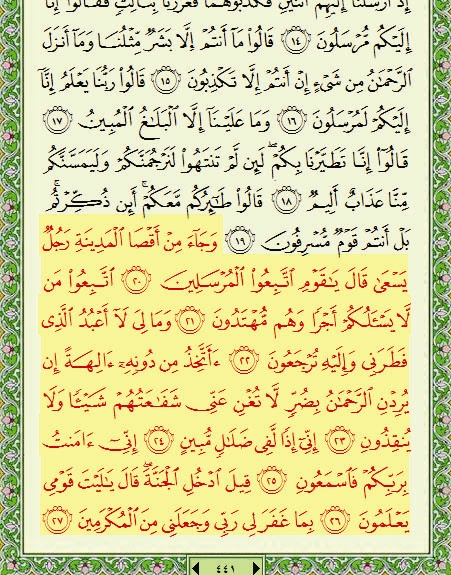 إِذْ أَرْسَلْنَآ إِلَيْهِمُ ٱثْنَيْنِ فَكَذَّبُوهُمَا فَعَزَّزْنَا بِثَالِثٍ فَقَالُوٓا۟ إِنَّآ
إِلَيْكُم مُّرْسَلُونَ ١٤ قَالُوا۟ مَآ أَنتُمْ إِلَّا بَشَرٌ مِّثْلُنَا وَمَآ أَنزَلَ
ٱلرَّحْمَٰنُ مِن شَىْءٍ إِنْ أَنتُمْ إِلَّا تَكْذِبُونَ ١٥ قَالُوا۟ رَبُّنَا يَعْلَمُ إِنَّآ
إِلَيْكُمْ لَمُرْسَلُونَ ١٦ وَمَا عَلَيْنَآ إِلَّا ٱلْبَلَٰغُ ٱلْمُبِينُ ١٧
قَالُوٓا۟ إِنَّا تَطَيَّرْنَا بِكُمْ ۖ لَئِن لَّمْ تَنتَهُوا۟ لَنَرْجُمَنَّكُمْ وَلَيَمَسَّنَّكُم
مِّنَّا عَذَابٌ أَلِيمٌ ١٨ قَالُوا۟ طَٰٓئِرُكُم مَّعَكُمْ ۚ أَئِن ذُكِّرْتُم ۚ
بَلْ أَنتُمْ قَوْمٌ مُّسْرِفُونَ ١٩ وَجَآءَ مِنْ أَقْصَا ٱلْمَدِينَةِ رَجُلٌ
يَسْعَىٰ قَالَ يَٰقَوْمِ ٱتَّبِعُوا۟ ٱلْمُرْسَلِينَ ٢٠ ٱتَّبِعُوا۟ مَن
لَّا يَسْـَٔلُكُمْ أَجْرًا وَهُم مُّهْتَدُونَ ٢١ وَمَا لِىَ لَآ أَعْبُدُ ٱلَّذِى
فَطَرَنِى وَإِلَيْهِ تُرْجَعُونَ ٢٢ ءَأَتَّخِذُ مِن دُونِهِۦٓ ءَالِهَةً إِن
يُرِدْنِ ٱلرَّحْمَٰنُ بِضُرٍّ لَّا تُغْنِ عَنِّى شَفَٰعَتُهُمْ شَيْـًٔا وَلَا
يُنقِذُونِ ٢٣ إِنِّىٓ إِذًا لَّفِى ضَلَٰلٍ مُّبِينٍ ٢٤ إِنِّىٓ ءَامَنتُ
بِرَبِّكُمْ فَٱسْمَعُونِ ٢٥ قِيلَ ٱدْخُلِ ٱلْجَنَّةَ ۖ قَالَ يَٰلَيْتَ قَوْمِى
يَعْلَمُونَ ٢٦ بِمَا غَفَرَ لِى رَبِّى وَجَعَلَنِى مِنَ ٱلْمُكْرَمِينَ ٢٧
٤٤١